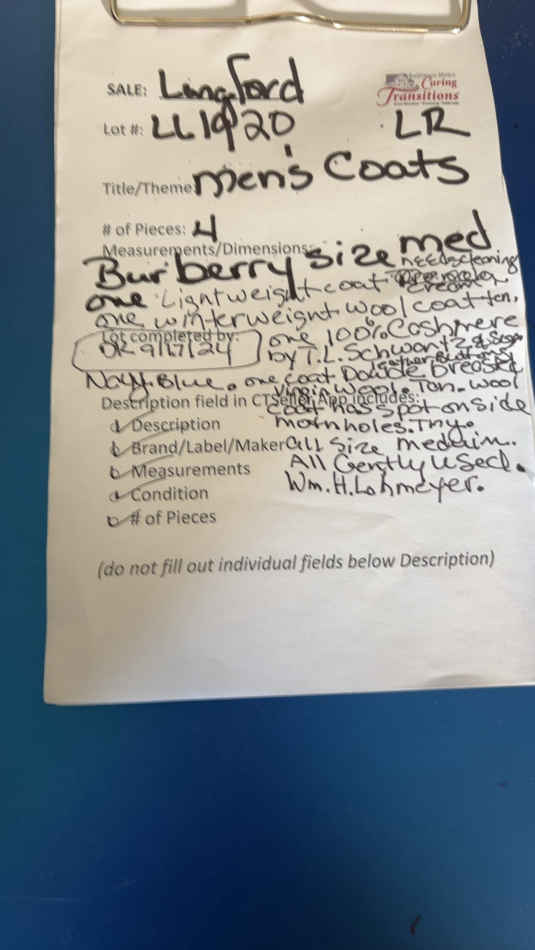 SALE: Langford
Caring
Transitions
Lot #: LL1920
LR
Title/Theme: Men's Coats
# of Pieces: 4
Measurements/Dimensions:
Burberry size med
needs cleaning
one Lightweight coat cream
one winterweight wool coat ten,
Lot completed by:
DR 9/17/24
one 100% Cashmere
by T.L. Schwartz &
Navy Blue. one coat Double breasted
Virgin wool. Tan. wool
Description field in CTSeller App includes:
coat has spot on side
Description
moinholes. Tny.
Brand/Label/Maker
all size mediim.
Measurements
All Gently used.
Condition
Wm. H. Lohmeyer.
# of Pieces
(do not fill out individual fields below Description)